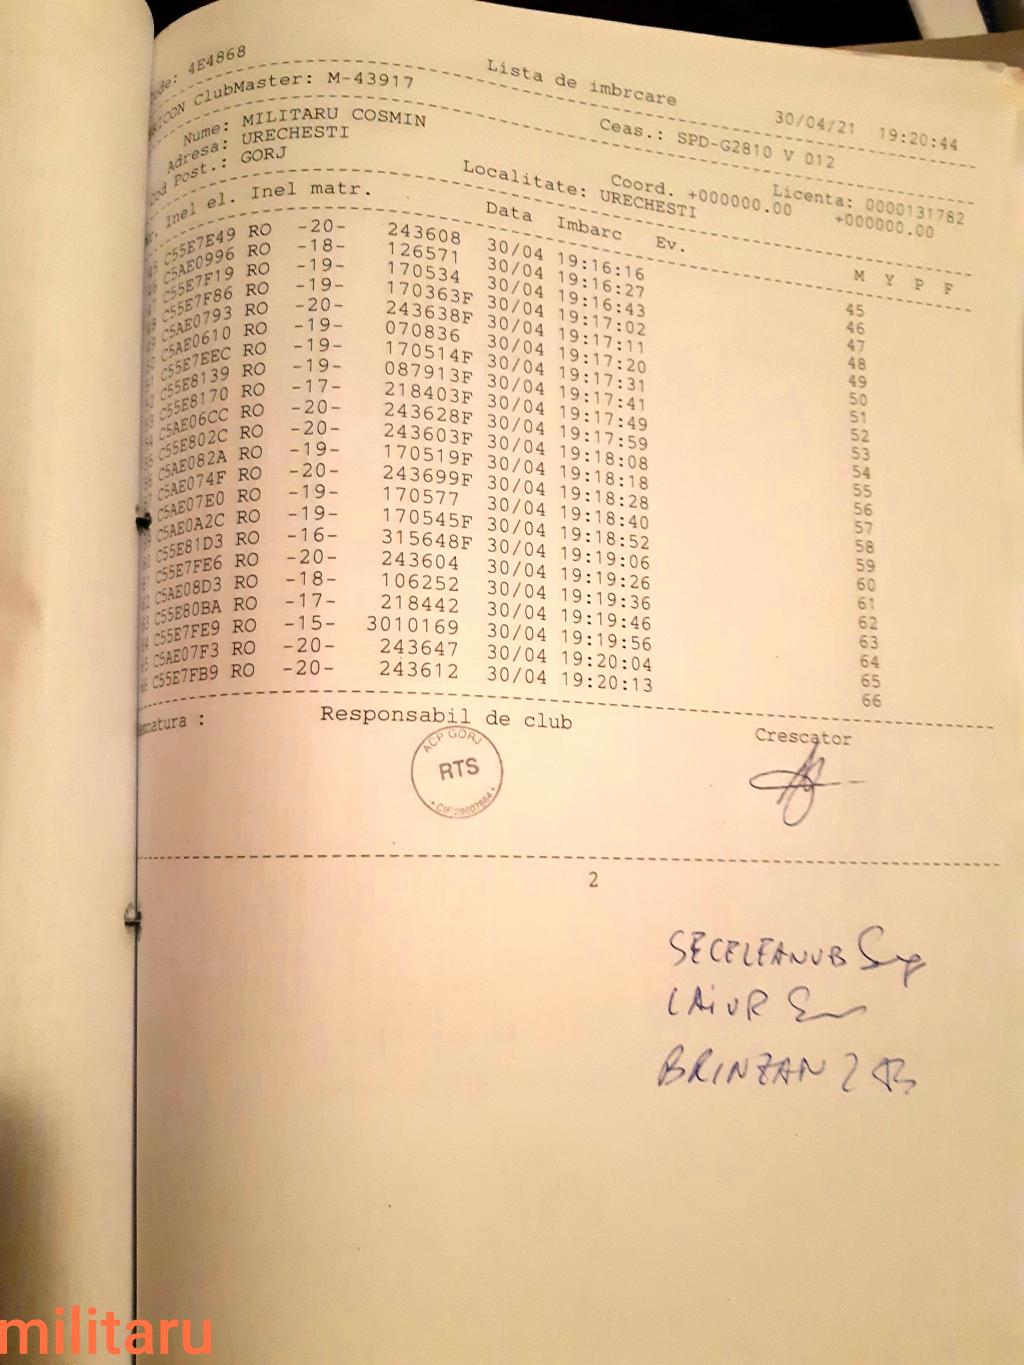 ode: 4E4868
Lista de imbrcare
30/04/21 19:20:44
RICON ClubMaster: M-43917
Ceas.: SPD-G2810 V 012
Licenta: 0000131782
Nume: MILITARU COSMIN
Coord. +000000.00 +000000.00
Adresa: URECHESTI
Localitate: URECHESTI
Cod Post.: GORJ
Nr. Inel el. Inel matr. Data Imbarc Ev. M Y P F
45 C55E7E49 RO -20- 243608 30/04 19:16:16 45
46 C5AE0996 RO -18- 126571 30/04 19:16:27 46
47 C55E7F19 RO -19- 170534 30/04 19:16:43 47
48 C55E7F86 RO -19- 170363F 30/04 19:17:02 48
49 C5AE0793 RO -20- 243638F 30/04 19:17:11 49
C5AE0610 RO -19- 070836 30/04 19:17:20 50
51 C55E7EEC RO -19- 170514F 30/04 19:17:31 51
52 C55E8139 RO -19- 087913F 30/04 19:17:41 52
53 C55E8170 RO -17- 218403F 30/04 19:17:49 53
54 C5AE06CC RO -20- 243628F 30/04 19:17:59 54
55 C55E802C RO -20- 243603F 30/04 19:18:08 55
56 C5AE082A RO -19- 170519F 30/04 19:18:18 56
57 C5AE074F RO -20- 243699F 30/04 19:18:28 57
C5AE07E0 RO -19- 170577 30/04 19:18:40 58
59 C5AE0A2C RO -19- 170545F 30/04 19:18:52 59
60 C55E81D3 RO -16- 315648F 30/04 19:19:06 60
61 C55E7FE6 RO -20- 243604 30/04 19:19:26 61
62 C5AE08D3 RO -18- 106252 30/04 19:19:36 62
63 C55E80BA RO -17- 218442 30/04 19:19:46 63
64 C55E7FE9 RO -15- 3010169 30/04 19:19:56 64
65 C5AE07F3 RO -20- 243647 30/04 19:20:04 65
66 C55E7FB9 RO -20- 243612 30/04 19:20:13 66
natura : Responsabil de club Crescator
ACP GORJ
RTS
2
SECELEANU B
LAIUR
BRINZAN
militaru